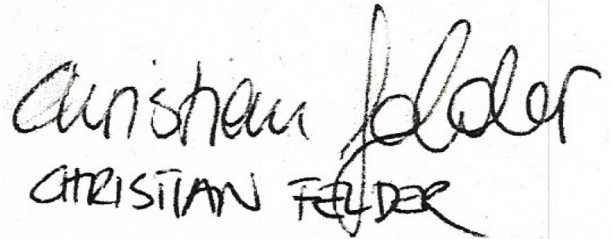 Christian Felder
CHRISTIAN FELDER